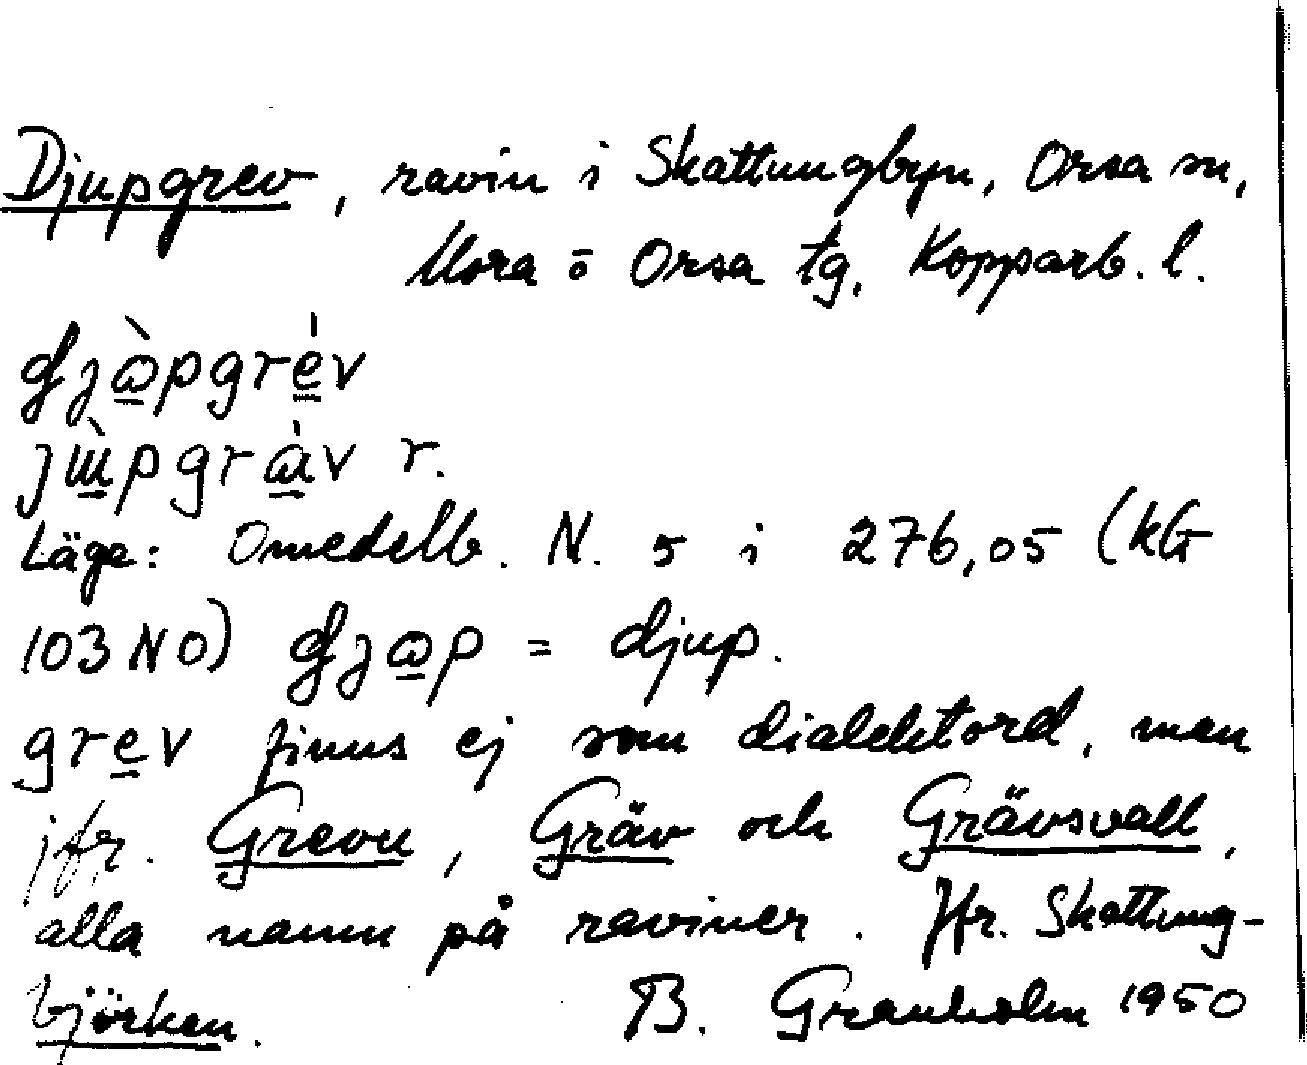 Djupgrev, ravin i Skattungbyn, Orsa sn,
Mora o Orsa tg, Kopparb. l.
r.
Läge: Omedelb. N. 5 i 276,05 (kG
103 NO) = djup.
grev finns ej som dialektord, men
jfr. Grevu, Gräv och Grävsvall,
alla namn på raviner. Jfr. Skattung-
björken. B. Granholm 1950